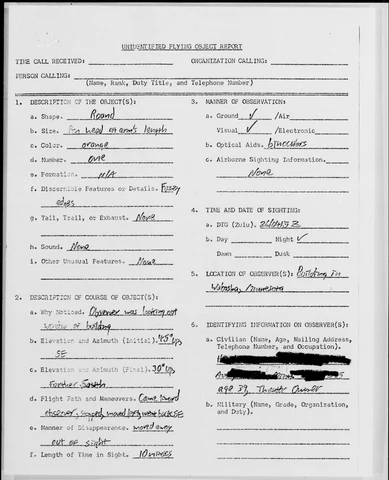 UNIDENTIFIED FLYING OBJECT REPORT
TIME CALL RECEIVED:
ORGANIZATION CALLING:
PERSON CALLING:
(Name, Rank, Duty Title, and Telephone Number)
1. DESCRIPTION OF THE OBJECT(S):
a. Shape. Round
b. Size. Pin head at arm's length
c. Color. orange
d. Number. one
e. Formation. N/A
f. Discernible Features or Details. Fuzzy
edges
g. Tail, Trail, or Exhaust. None
h. Sound. None
i. Other Unusual Features. None
2. DESCRIPTION OF COURSE OF OBJECT(S):
a. Why Noticed. Observer was looking out
window of building
b. Elevation and Azimuth (Initial). 45° up,
SE
c. Elevation and Azimuth (Final). 30° up,
Further South
d. Flight Path and Maneuvers. Came toward
observer, stopped, moved, went back SE
e. Manner of Disappearance. moved away
out of sight
f. Length of Time in Sight. 10 mins
3. MANNER OF OBSERVATION:
a. Ground ✓ /Air
Visual ✓ /Electronic
b. Optical Aids. binoculars
c. Airborne Sighting Information.
None
4. TIME AND DATE OF SIGHTING:
a. DTG (Zulu).
b. Day Night ✓
Dawn Dusk
5. LOCATION OF OBSERVER(S): Building in
Minnesota
6. IDENTIFYING INFORMATION ON OBSERVER(S):
a. Civilian (Name, Age, Mailing Address,
Telephone Number, and Occupation).
age 39, Theater Owner
b. Military (Name, Grade, Organization,
and Duty).